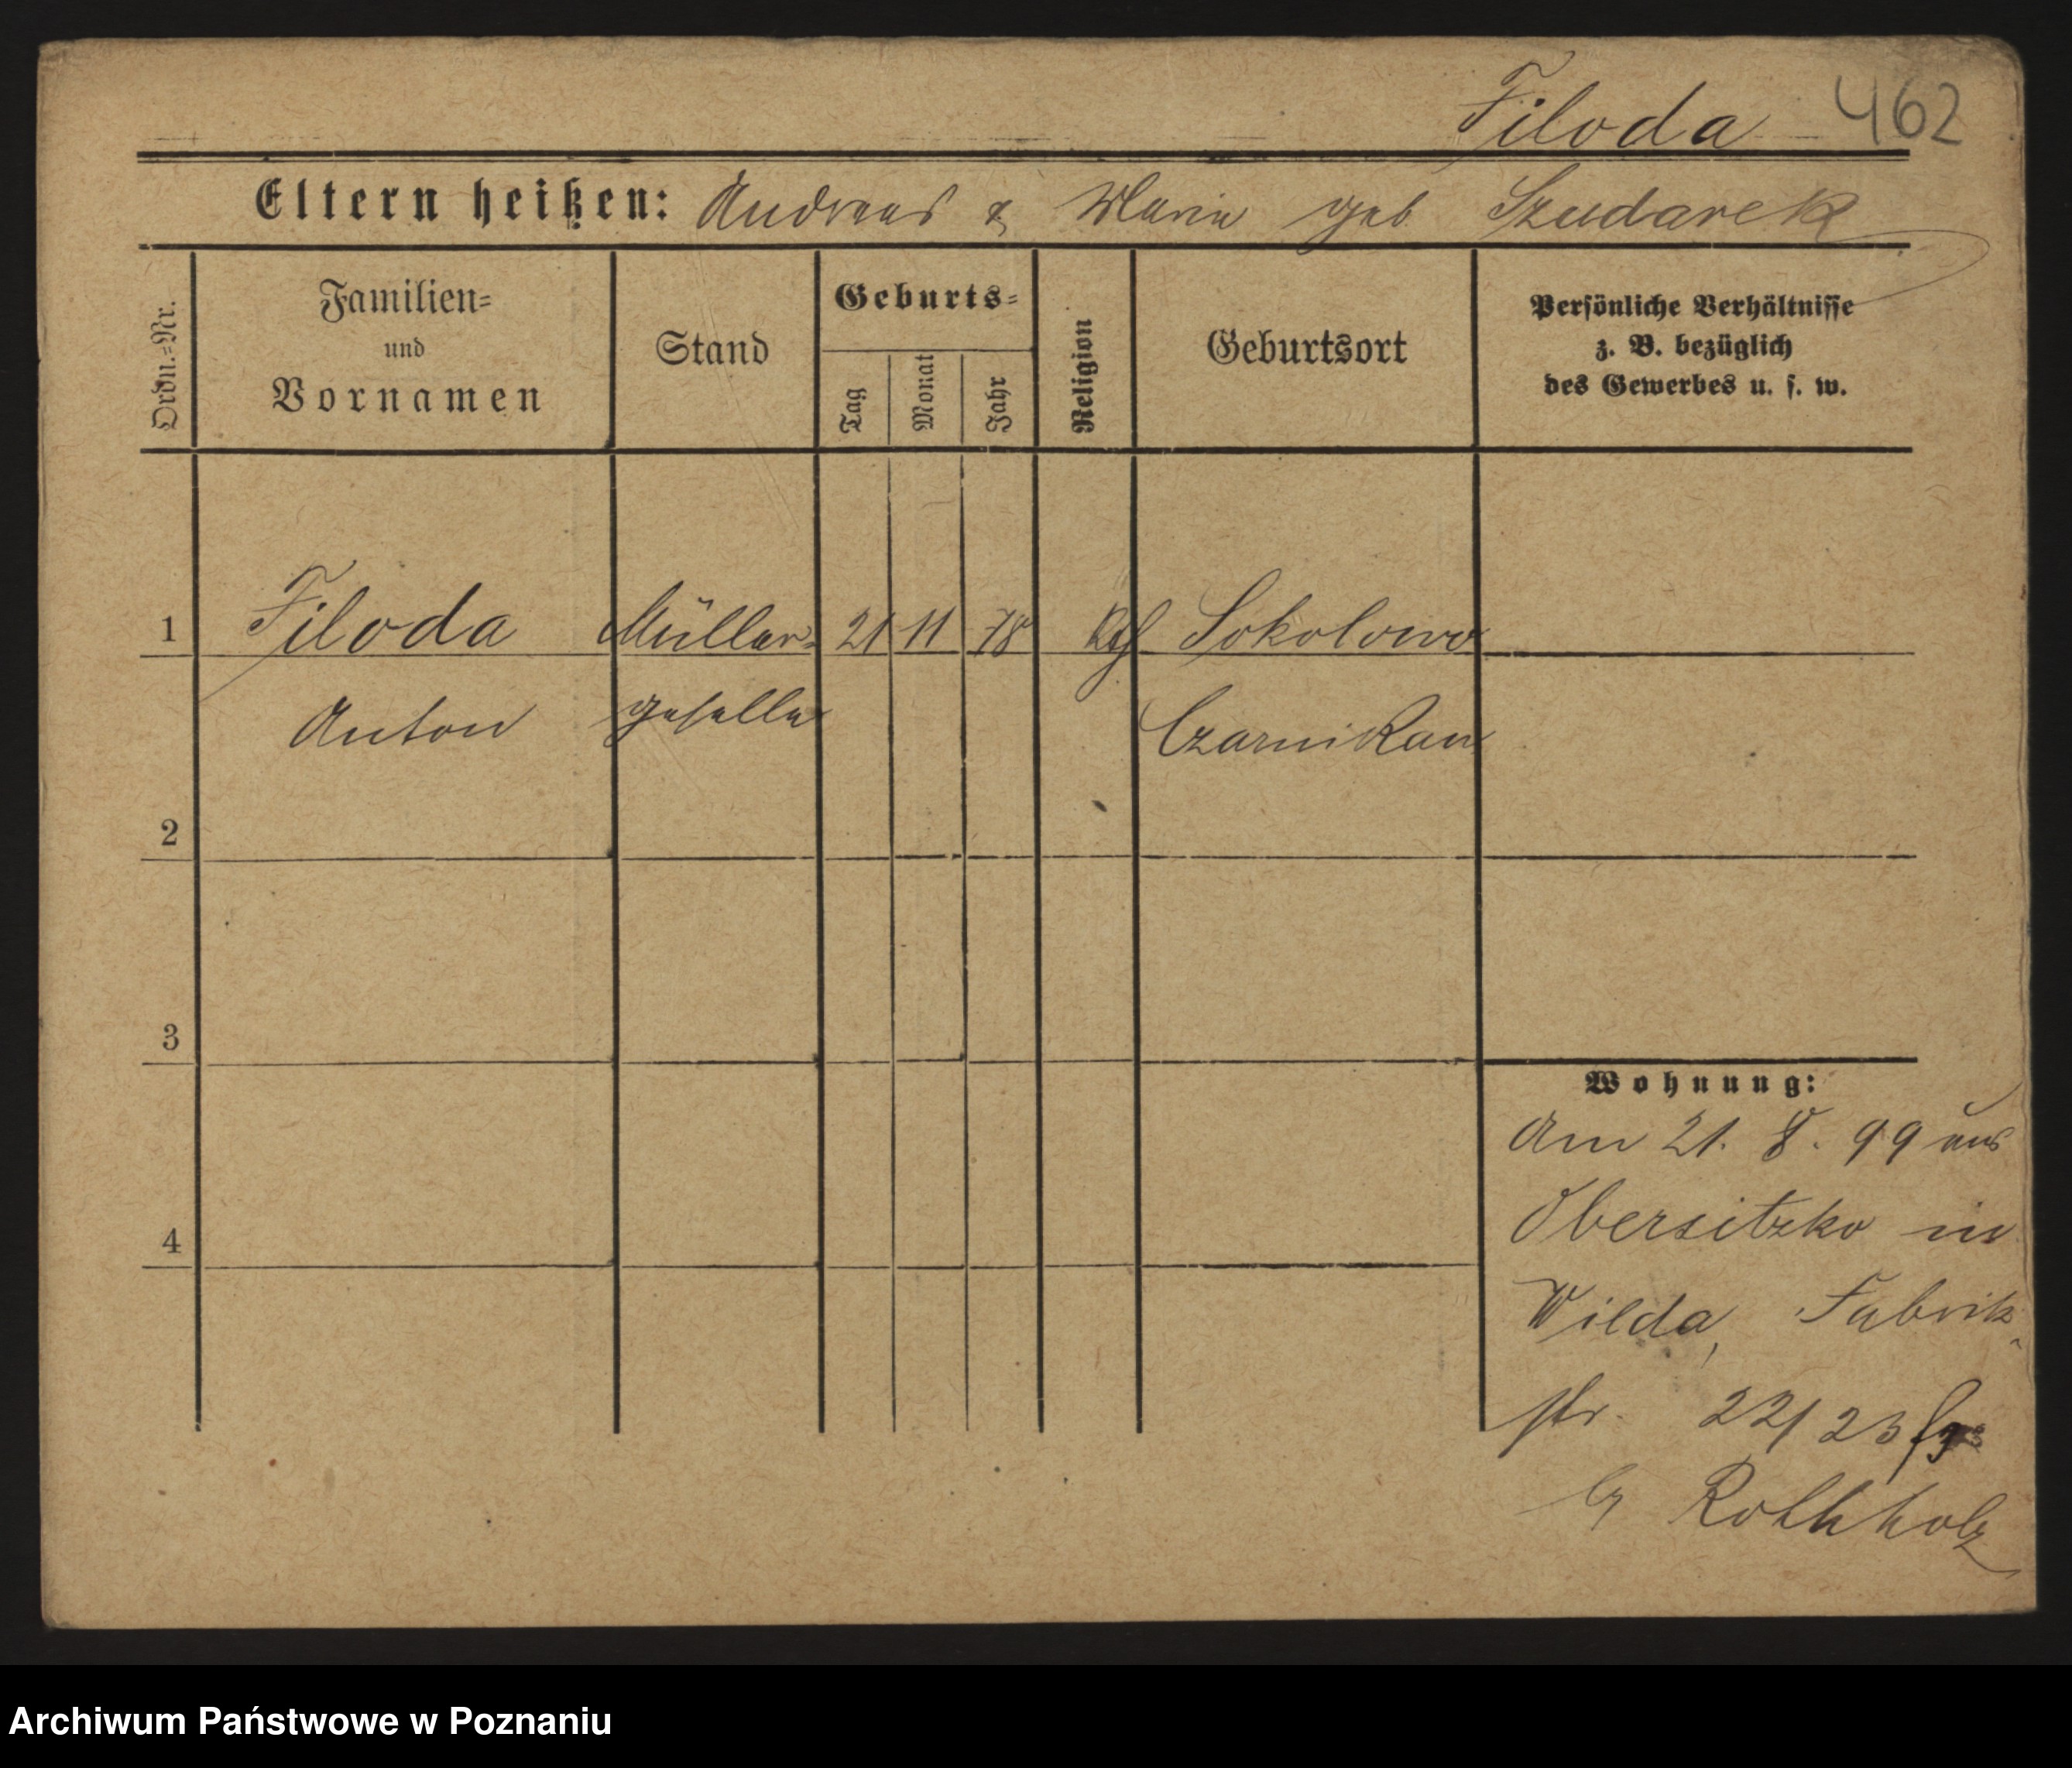 Filoda 462
Eltern heißen: Andreas & Maria geb Szudarek
Ordn.=Nr.
Familien=
und
Vornamen
Stand
Geburts=
Tag
Monat
Jahr
Religion
Geburtsort
Persönliche Verhältnisse
z. B. bezüglich
des Gewerbes u. s. w.
1 Filoda Müller= 21 11 78 Kth Sokolowo
Anton geselle Czarnikau
2
3
4
Wohnung:
Am 21. 8. 99 aus
Obersitzko in
Wilda, Fabrik-
str. 22/23
b/ Rothholz
Archiwum Państwowe w Poznaniu